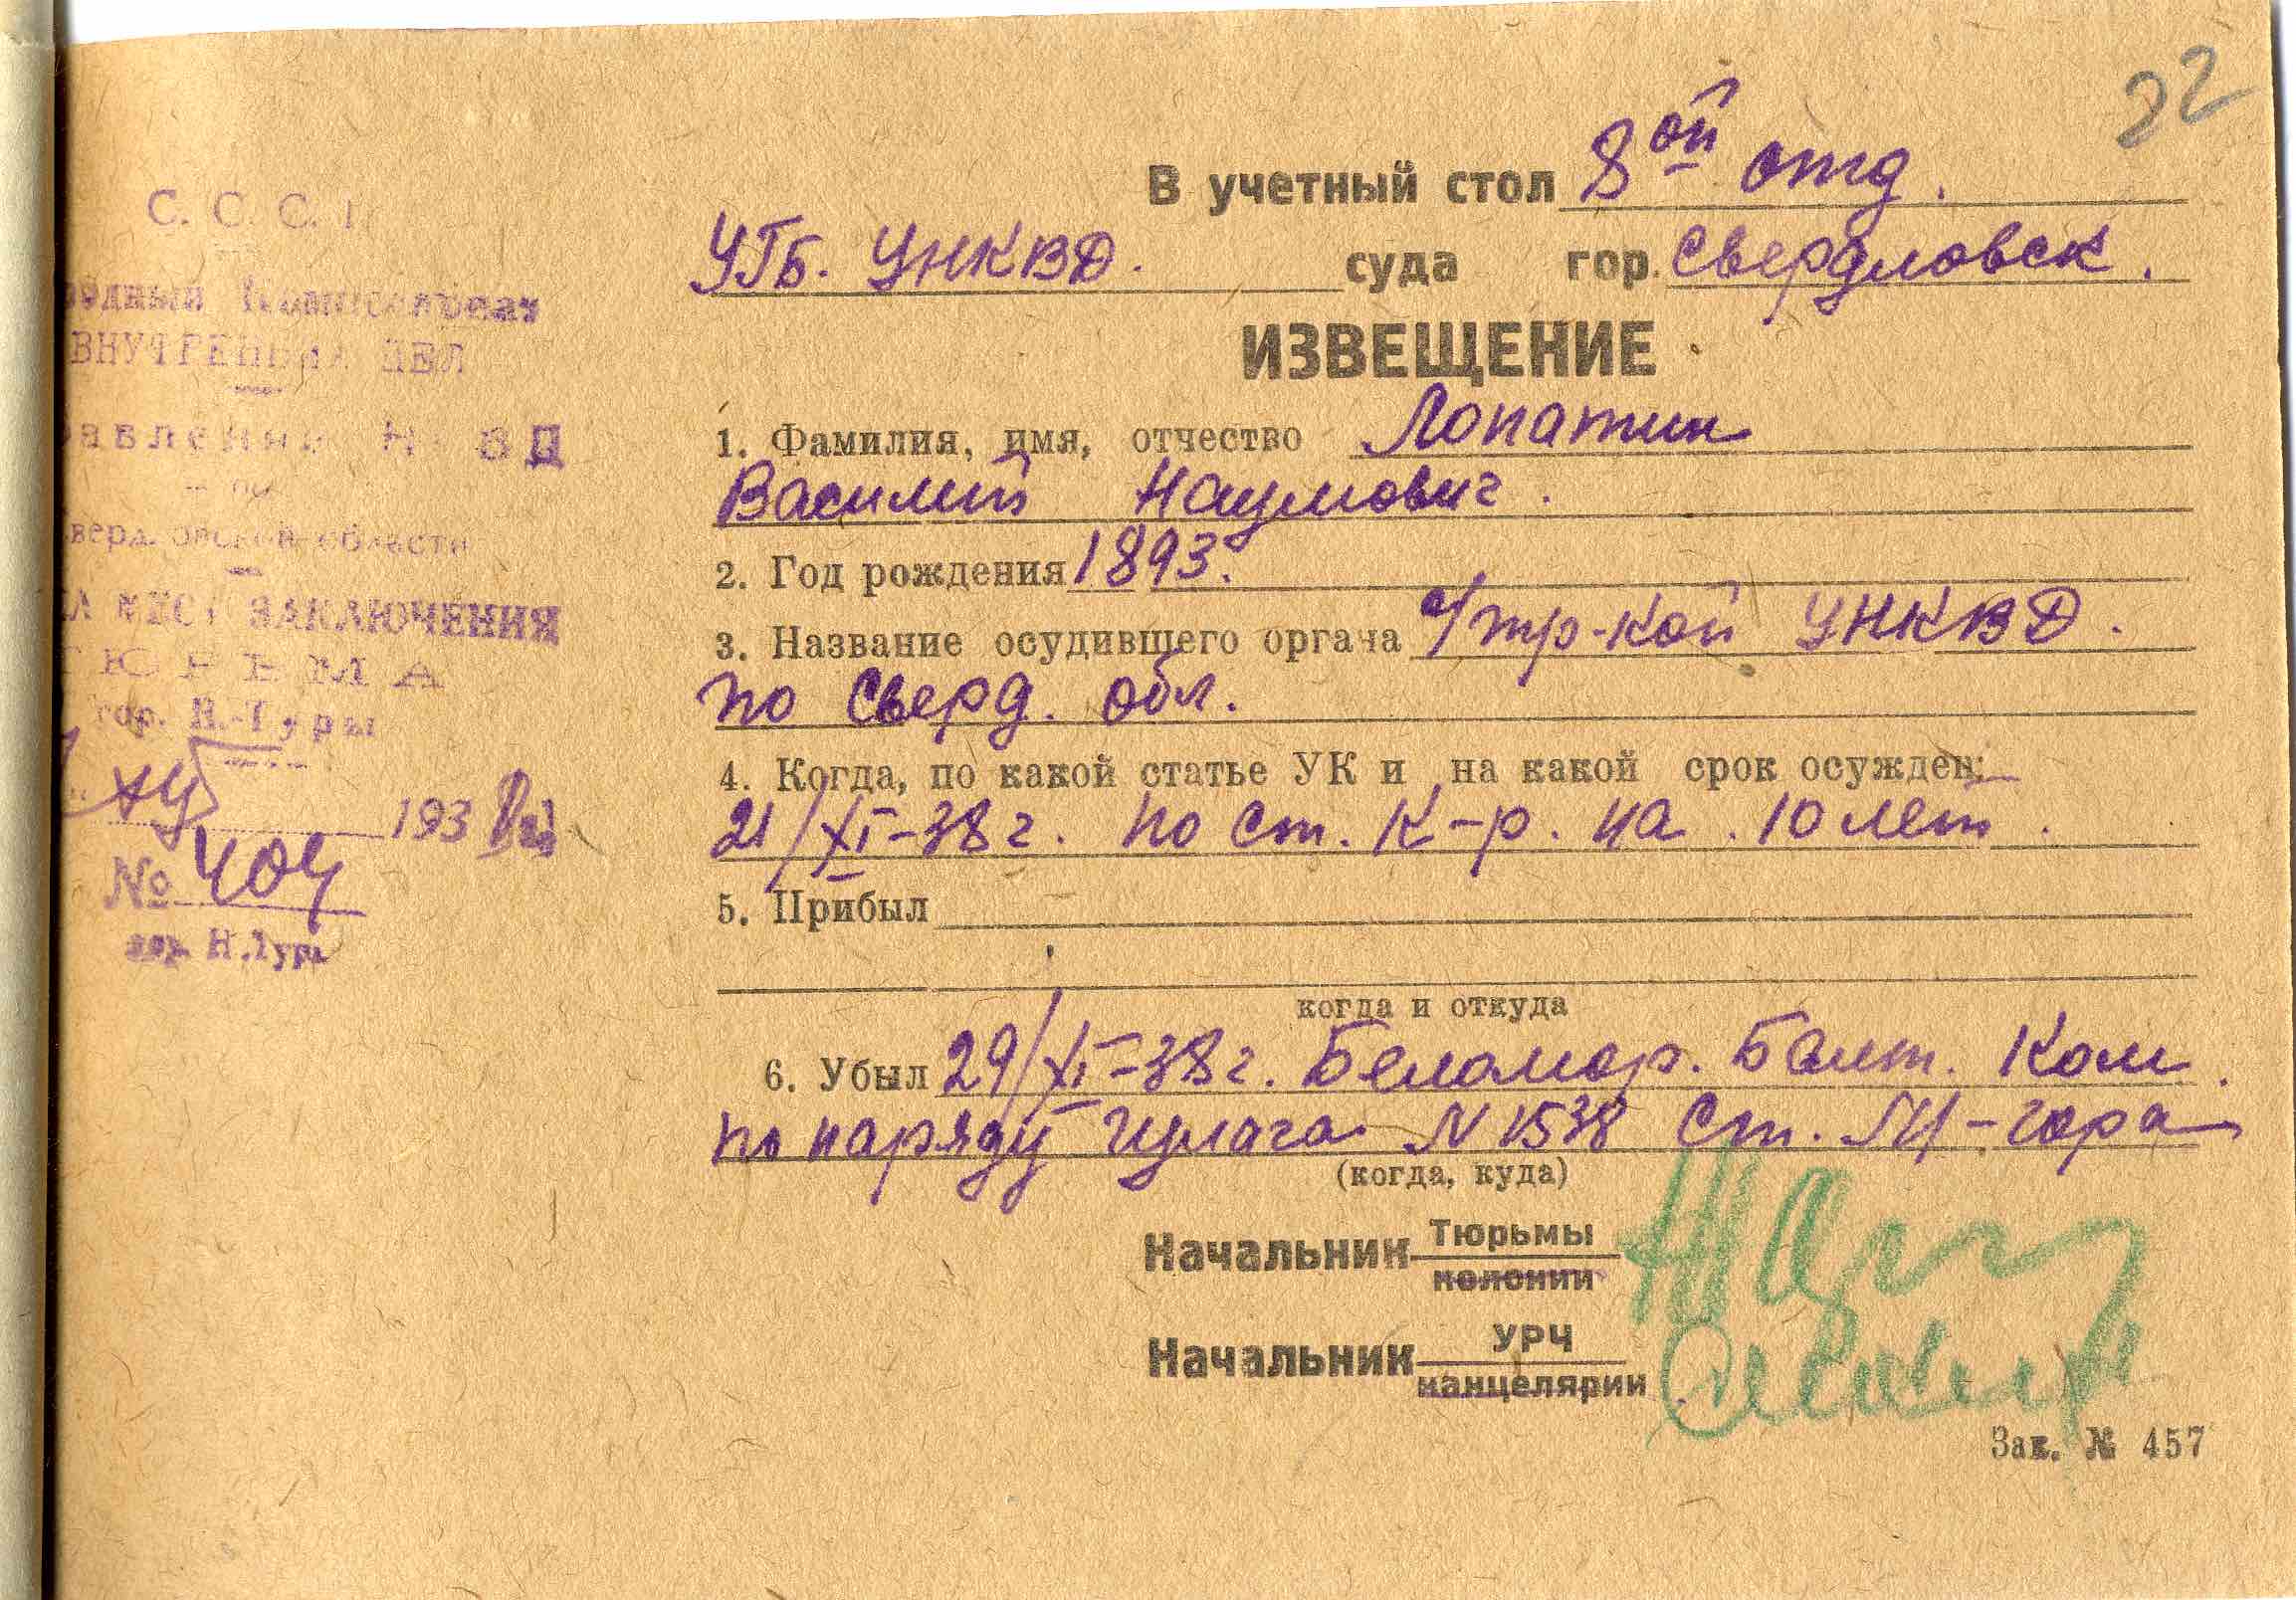 22
С. С. С. Р
родный Комиссариат
ВНУТРЕННИХ ДЕЛ
равлени НКВД
по
вердловской области
МЕСТ ЗАКЛЮЧЕНИЯ
ТЮРЬМА
гор. Н.-Туры
193
№ 404
гор. Н.Тура
В учетный стол 8ой отд.
УГБ. УНКВД. суда гор. Свердловск.
ИЗВЕЩЕНИЕ
1. Фамилия, имя, отчество Лопатин
Василий Наумович.
2. Год рождения 1893.
3. Название осудившего органа с/тр-кой УНКВД.
по Сверд. обл.
4. Когда, по какой статье УК и на какой срок осужден:
21/XI-38г. по ст. К-р. на 10 лет.
5. Прибыл
когда и откуда
6. Убыл 29/XI-38г. Беломор. Балт. Ком.
по наряду Гулага N 1538 Ст. М-гора
(когда, куда)
Начальник Тюрьмы
колонии
Начальник УРЧ
канцелярии
Зак. № 457